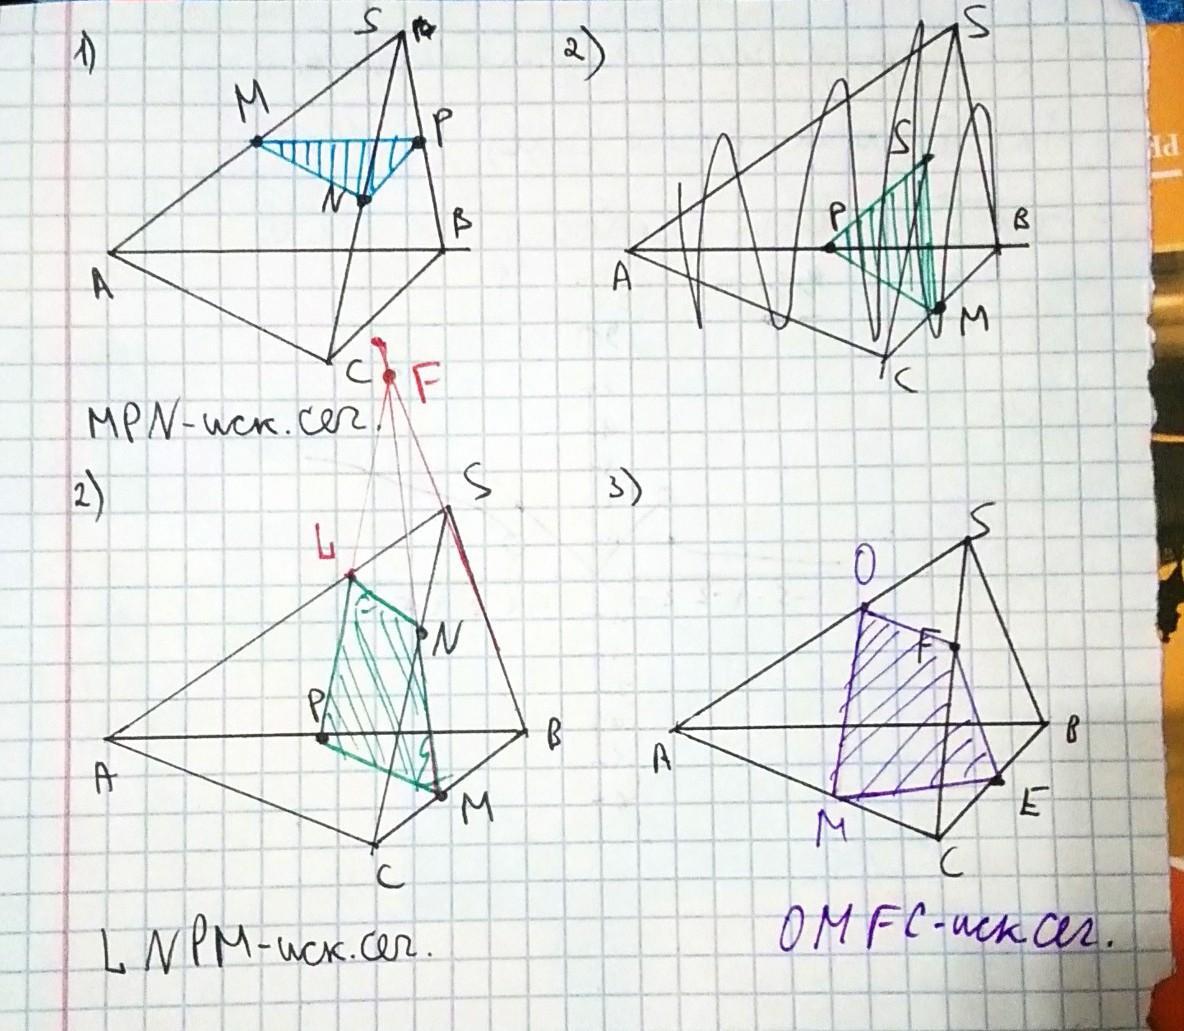 1)
S
M
P
N
A
B
C
MPN-иск. сег.
2)
S
S
P
B
A
M
C
2)
F
S
L
N
P
A
B
M
C
LNPM-иск. сег.
3)
S
O
F
A
B
M
E
C
OMFC-иск сег.